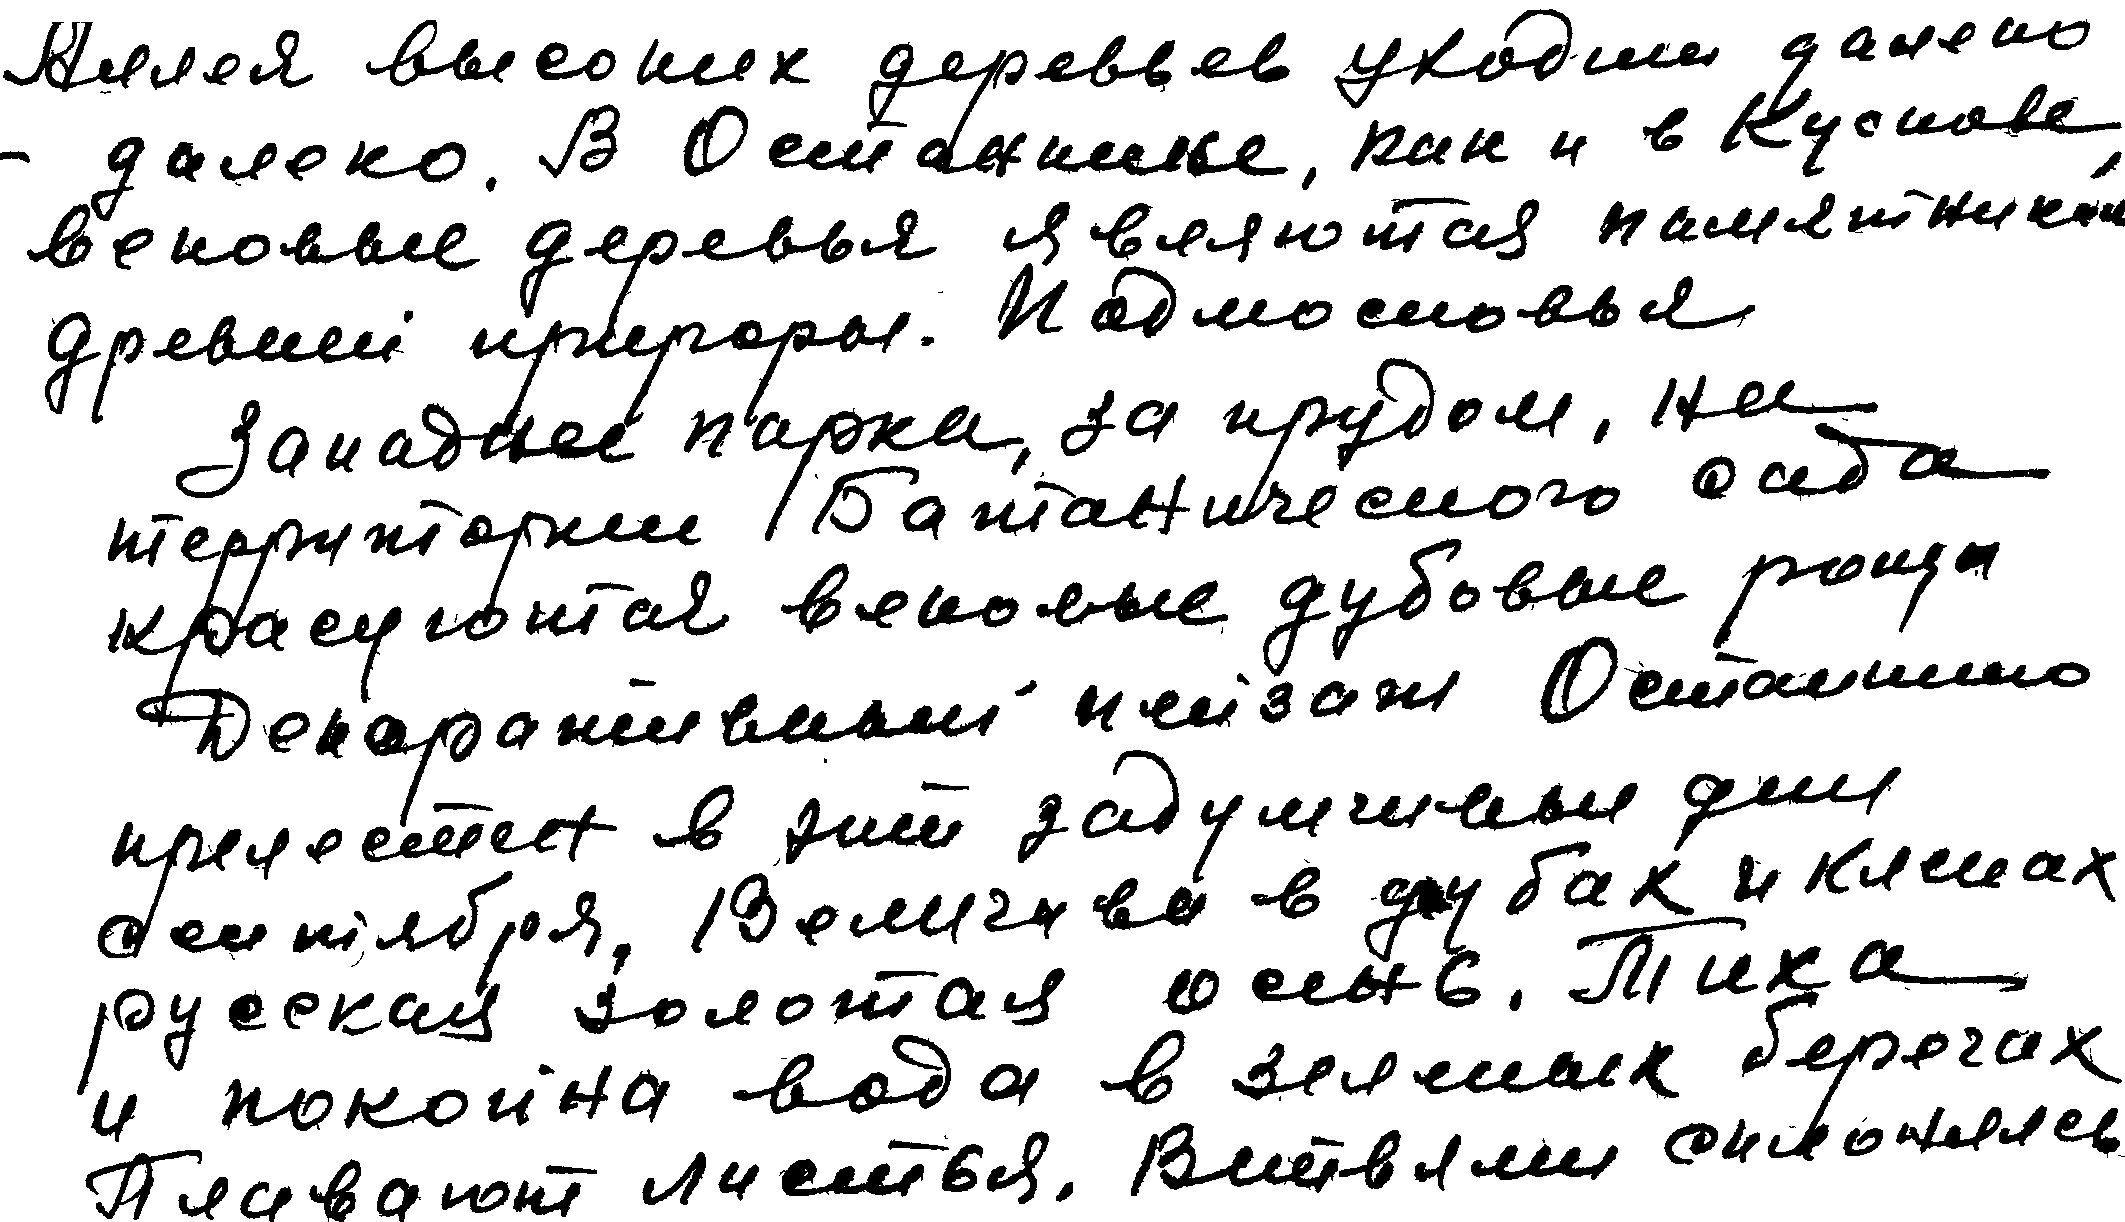 Аллея высоких деревьев уходит далеко
- далеко. В Останкине, как и в Кускове,
вековые деревья являются памятником
древней природы. Подмосковья
Западнее парка, за прудом, на
территории Ботанического сада
красуются вековые дубовые рощи
Декоративный пейзаж Останкино
прелестен в эти задумчивые дни
сентября. Величава в дубах и кленах
русская золотая осень. Тиха
и покойна вода в зеленых берегах
Плавают листья. Ветвями склонялсь